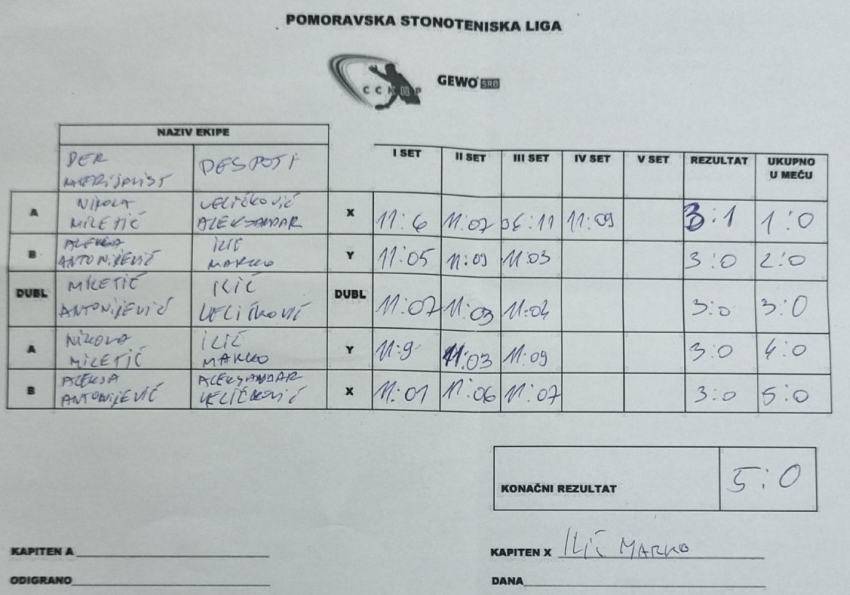 POMORAVSKA STONOTENISKA LIGA
CCKMP GEWO SRB
NAZIV EKIPE
DER MATERIJALIST DESPOTI I SET II SET III SET IV SET V SET REZULTAT UKUPNO U MEČU
A NIKOLA MILETIĆ VELIČKOVIĆ ALEKSANDAR X 11:6 11:07 06:11 11:09 3:1 1:0
B ALEKSA ANTONIJEVIĆ ILIĆ MARKO Y 11:05 11:09 11:03 3:0 2:0
DUBL MILETIĆ ANTONIJEVIĆ ILIĆ VELIČKOVIĆ DUBL 11:07 11:03 11:04 3:0 3:0
A NIKOLA MILETIĆ ILIĆ MARKO Y 11:9 11:03 11:09 3:0 4:0
B ALEKSA ANTONIJEVIĆ ALEKSANDAR VELIČKOVIĆ X 11:01 11:06 11:07 3:0 5:0
KONAČNI REZULTAT 5:0
KAPITEN A KAPITEN X ILIĆ MARKO
ODIGRANO DANA